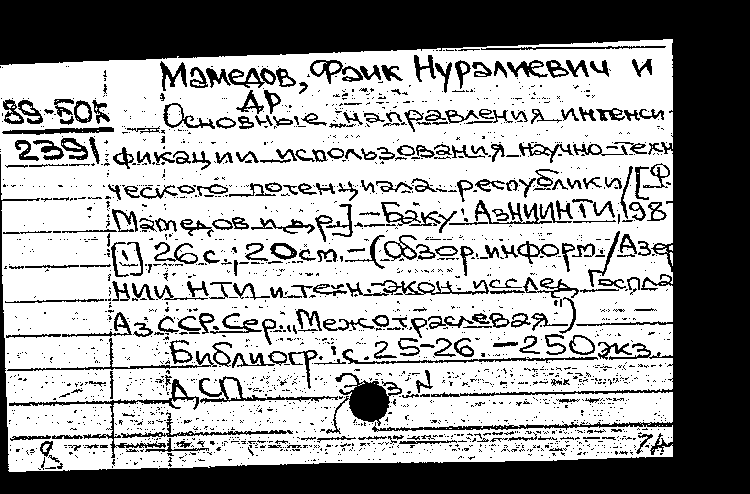 Мамедов, Фаик Нуралиевич и
др.
89-50к Основные направления интенси
2391 фикации использования научно-техн
ческого потенциала республики/[Ф.
Мамедов и др.].-Баку: АзНИИНТИ, 198
[1], 26 с.; 20 см.-(Обзор. информ./Азер
НИИ НТИ и техн.-экон. исслед. Госпла
Аз.ССР. Сер. "Межотраслевая")
Библиогр.: с. 25-26. - 250 экз.
Д, СП. Экз. N